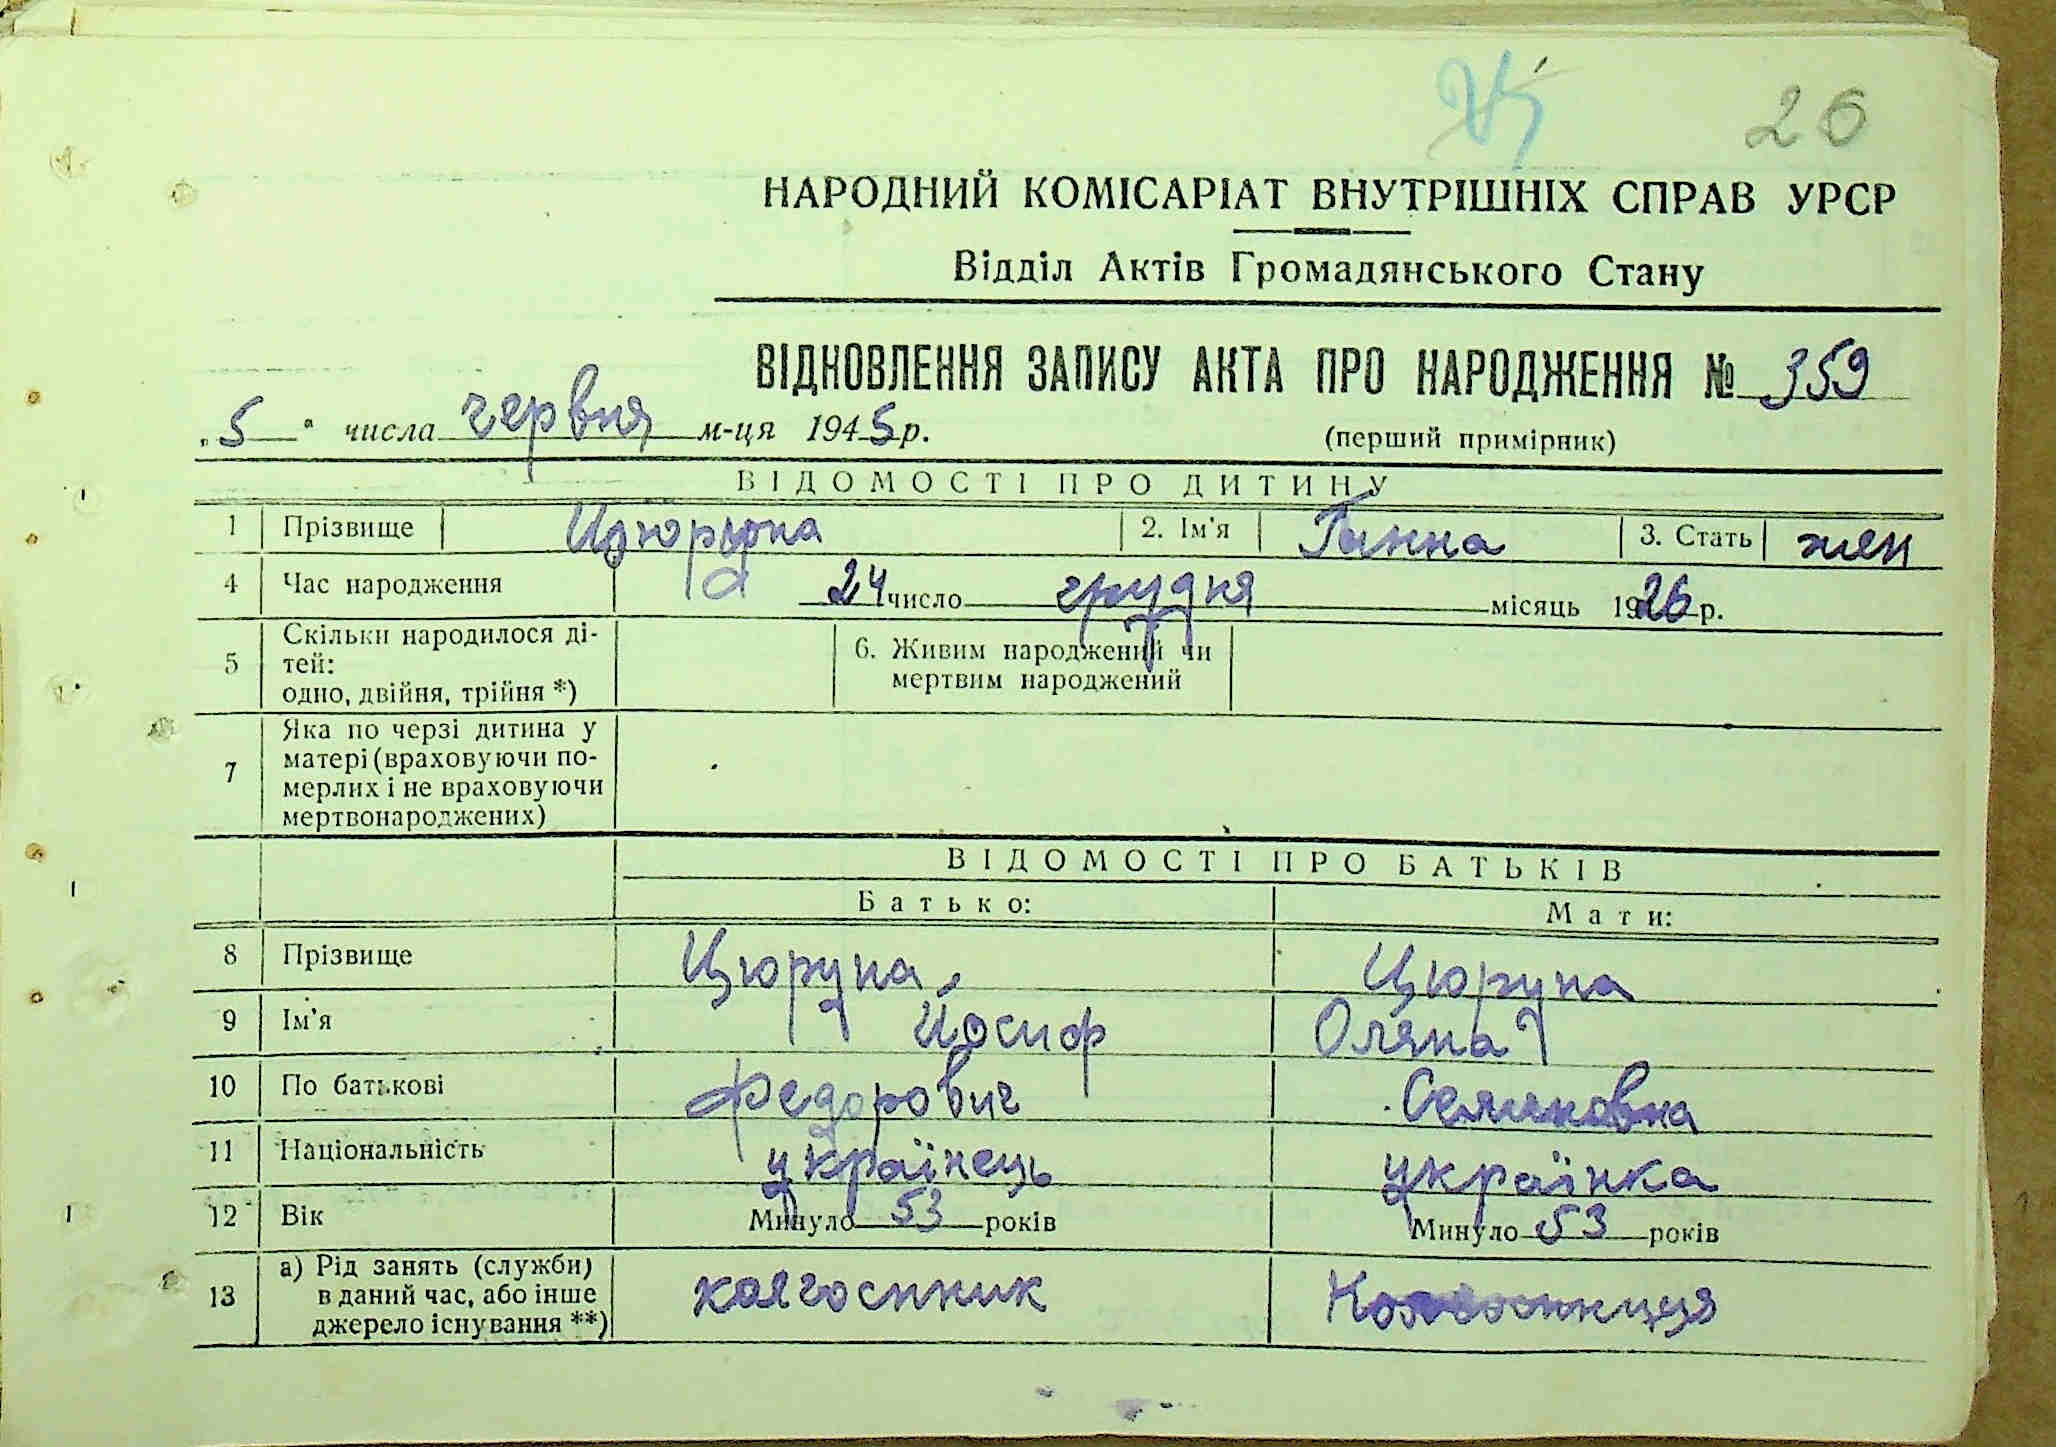 26
НАРОДНИЙ КОМІСАРІАТ ВНУТРІШНІХ СПРАВ УРСР
Відділ Актів Громадянського Стану
ВІДНОВЛЕННЯ ЗАПИСУ АКТА ПРО НАРОДЖЕННЯ № 359
„5“ числа червня м-ця 1945 р.
(перший примірник)
ВІДОМОСТІ ПРО ДИТИНУ
1 Прізвище 2. Ім'я Ганна 3. Стать жен
4 Час народження 24 число грудня місяць 1926 р.
5 Скільки народилося ді-
тей:
одно, двійня, трійня *)
6. Живим народжений чи
мертвим народжений
7 Яка по черзі дитина у
матері (враховуючи по-
мерлих і не враховуючи
мертвонароджених)
ВІДОМОСТІ ПРО БАТЬКІВ
Батько: Мати:
8 Прізвище Цюрупа Цюрупа
9 Ім'я Йосиф Оляна
10 По батькові Федорович
11 Національність українець українка
12 Вік Минуло 53 років Минуло 53 років
13 а) Рід занять (служби)
в даний час, або інше
джерело існування **)
колгоспник